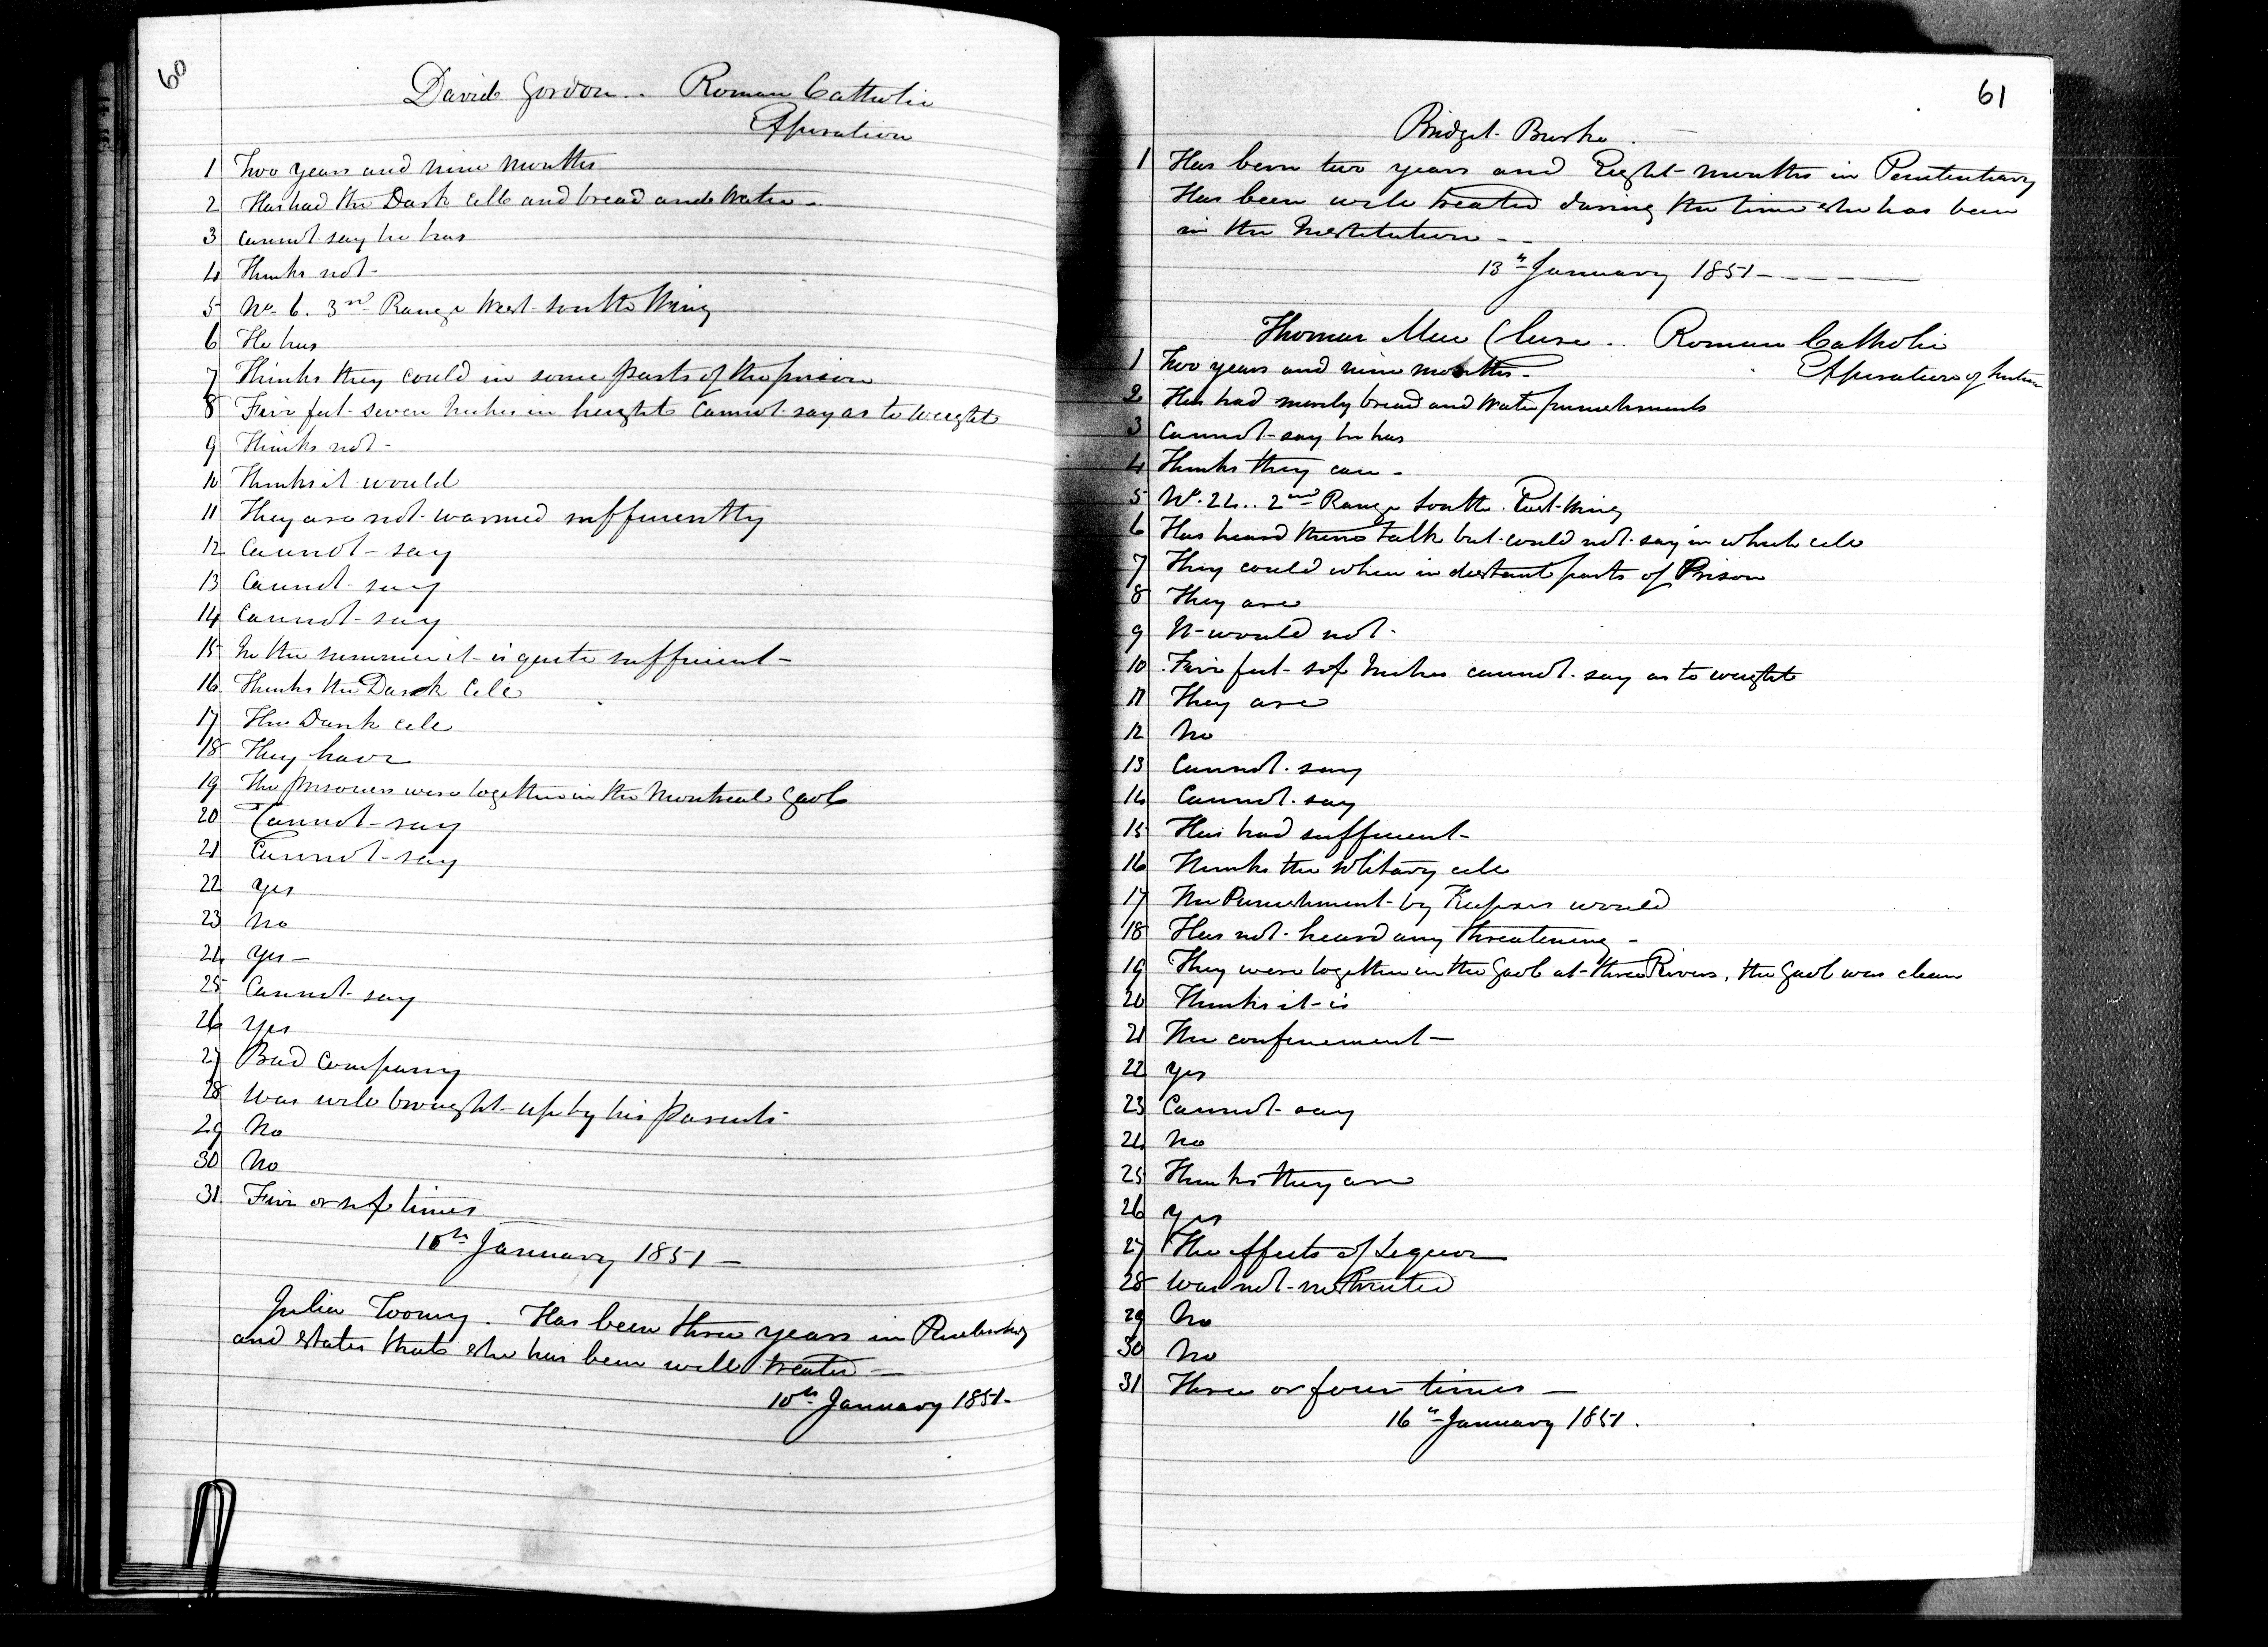 60
David Gordon .. Roman Catholic
Expiration
1 Two years and nine months
2 Has had the Dark cell and bread and water -
3 Cannot say he has
4 Thinks not -
5 No. 6. 3rd Range West South Wing
6 He has
7 Thinks they could in some parts of the prison
8 Five feet seven Inches in height cannot say as to weight
9 Thinks not -
10 Thinks it would
11 They are not warmed sufficiently
12 Cannot - say
13 Cannot say
14 Cannot - say
15 In the summer it is quite sufficient -
16 Thinks the Dark Cell
17 The Dark cell
18 They have
19 The prisoners were together in the Montreal Gaol
20 Cannot - say
21 Cannot - say
22 Yes
23 No
24 Yes -
25 Cannot say
26 Yes
27 Bad Company
28 Was well brought up by his parents
29 No
30 No
31 Five or six times
10th January 1851 -
Julia Toomy . Has been three years in Penitentiary
and states that she has been well treated -
10th January 1851 -
61
Bridget Burke . -
1 Has been two years and Eight months in Penitentiary
Has been well treated during the time she has been
in the Institution - -
13th January 1851 - - - -
Thomas .. Roman Catholic
1 Two years and nine months - Expiration of
2 Has had merely bread and water punishments
3 Cannot - say he has
4 Thinks they can -
5 No. 24 .. 2nd Range South East Wing
6 Has heard them talk but could not say in which cell
7 They could when in distant parts of Prison
8 They are
9 It would not -
10 Five feet six Inches cannot say as to weight
11 They are
12 No
13 Cannot say
14 Cannot say
15 Has had sufficient -
16 Thinks the solitary cell
17 The Punishment by Keepers would
18 Has not heard any threatening -
19 They were together in the Gaol at Three Rivers, the Gaol was clean
20 Thinks it is
21 The confinement -
22 Yes
23 Cannot say
24 No
25 Thinks they are
26 Yes
27 The effects of Liquor
28 Was not instructed
29 No
30 No
31 Three or four times -
16th January 1851 .